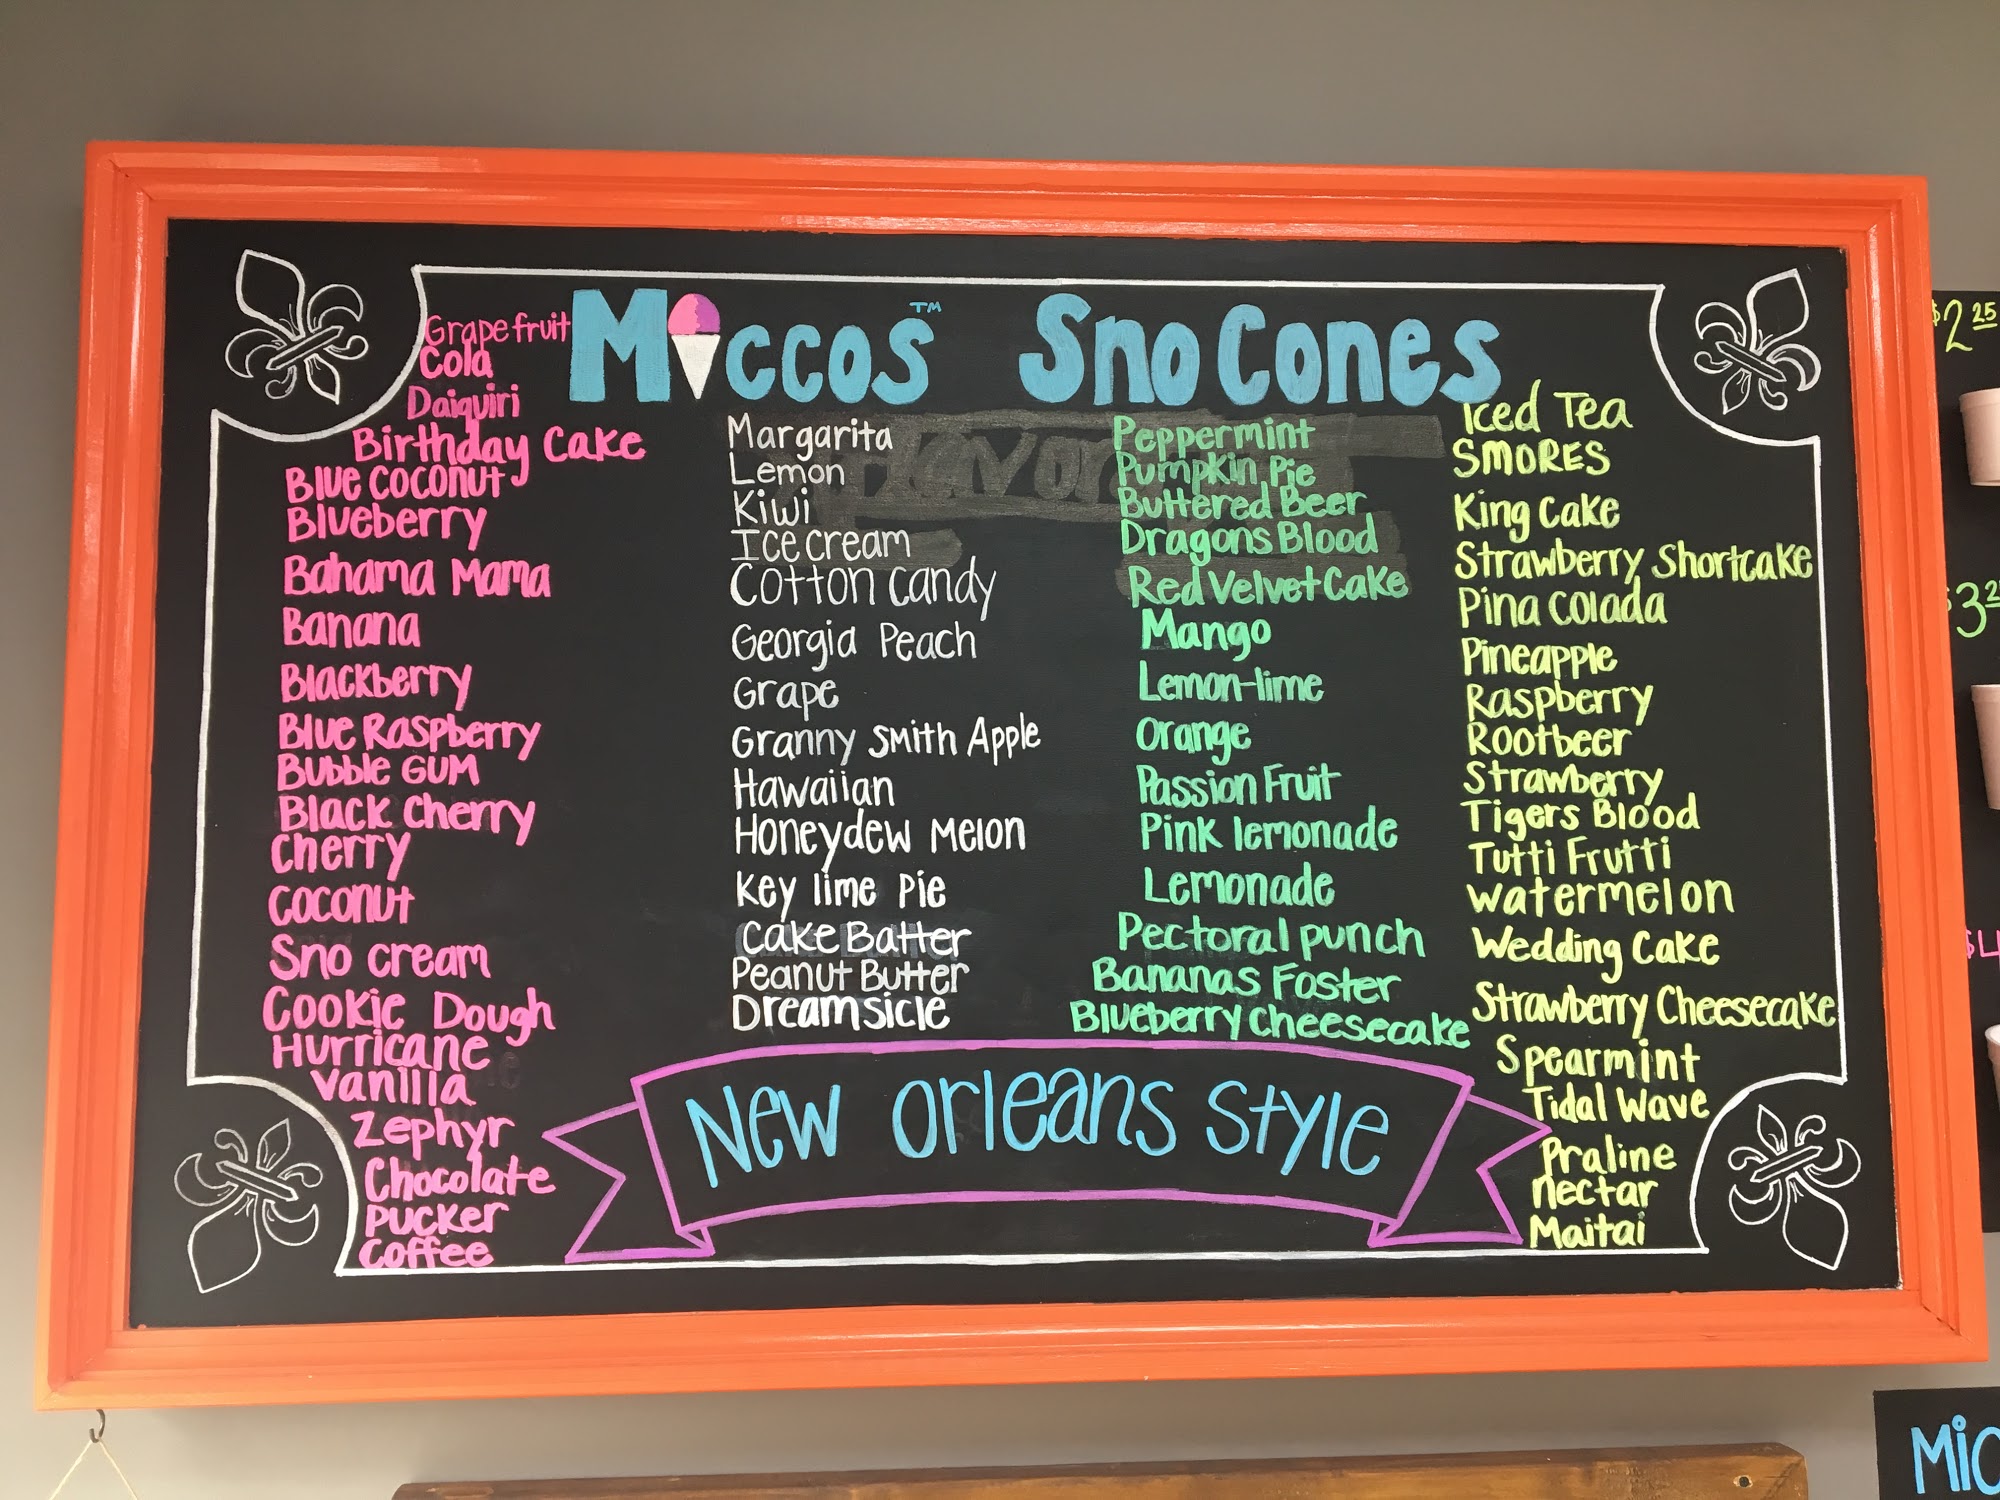 Miccos™ Sno Cones
Grapefruit
Cola
Daiquiri
Birthday Cake
Blue Coconut
Blueberry
Bahama Mama
Banana
Blackberry
Blue Raspberry
Bubble Gum
Black Cherry
Cherry
Coconut
Sno cream
Cookie Dough
Hurricane
Vanilla
Zephyr
Chocolate
Pucker
Coffee
Margarita
Lemon
Kiwi
Ice cream
Cotton Candy
Georgia Peach
Grape
Granny Smith Apple
Hawaiian
Honeydew Melon
Key lime Pie
Cake Batter
Peanut Butter
Dreamsicle
Peppermint
Pumpkin Pie
Buttered Beer
Dragons Blood
Red Velvet Cake
Mango
Lemon-lime
Orange
Passion Fruit
Pink lemonade
Lemonade
Pectoral punch
Bananas Foster
Blueberry Cheesecake
Iced Tea
SMORES
King Cake
Strawberry Shortcake
Pina Colada
Pineapple
Raspberry
Rootbeer
Strawberry
Tigers Blood
Tutti Frutti
Watermelon
Wedding Cake
Strawberry Cheesecake
Spearmint
Tidal Wave
Praline
nectar
Maitai
New Orleans Style
$2 25